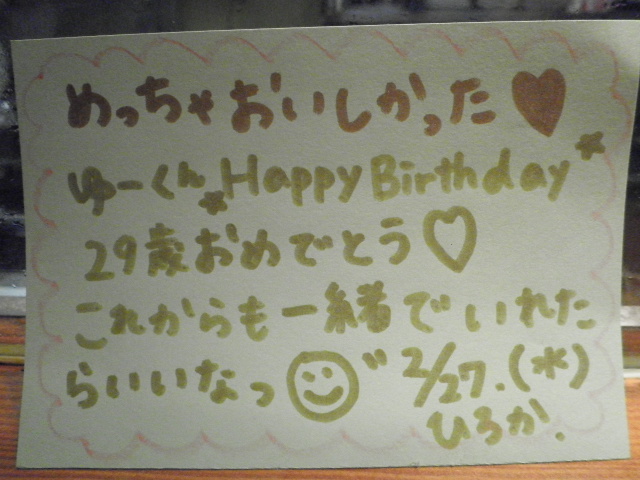 めっちゃおいしかった♥
ゆーくん Happy Birthday
29歳おめでとう♡
これからも一緒でいれた
らいいなっ☺" 2/27.(木)
ひろか.